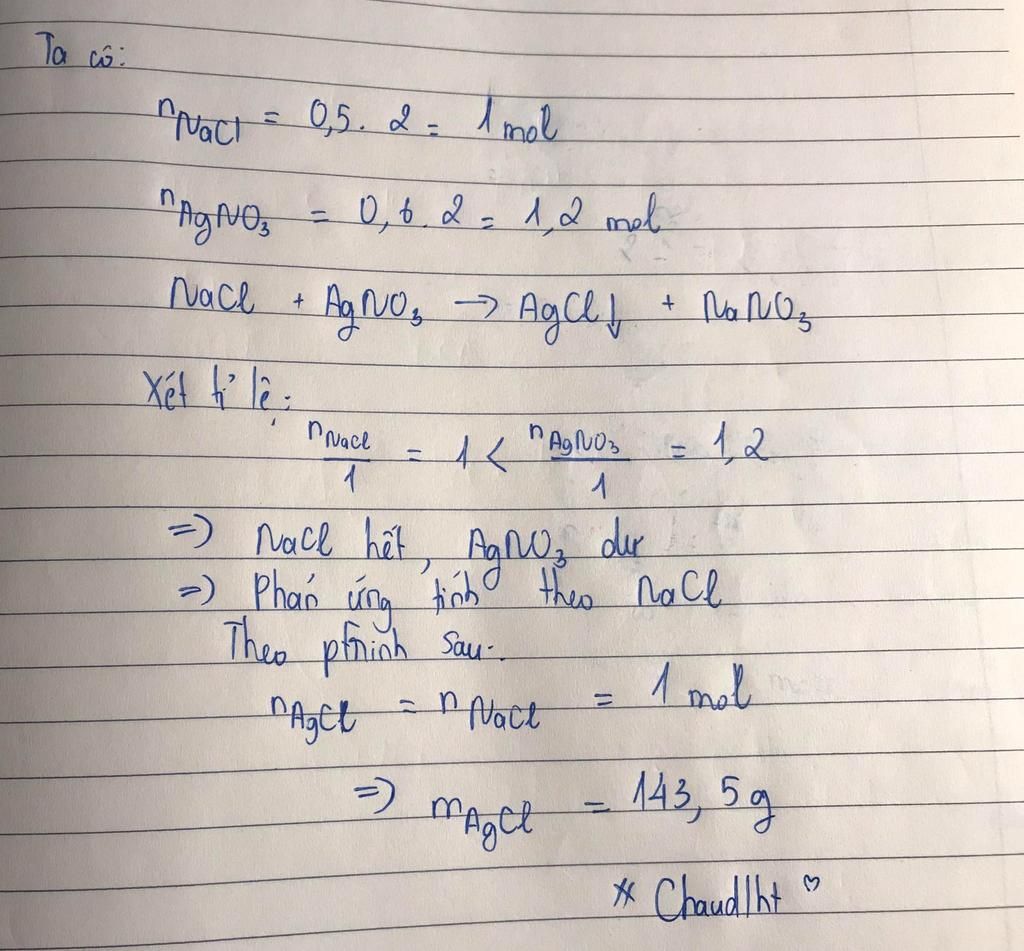 Ta có:
nNaCl = 0,5. 2 = 1 mol
nAgNO3 = 0,6. 2 = 1,2 mol
NaCl + AgNO3 → AgCl↓ + NaNO3
Xét tỉ lệ:
nNaCl/1 = 1 < nAgNO3/1 = 1,2
=) NaCl hết, AgNO3 dư
=) Phản ứng tính theo NaCl
Theo ptrình sau:
nAgCl = nNaCl = 1 mol
=) mAgCl = 143,5g
* Chaudlht ♡